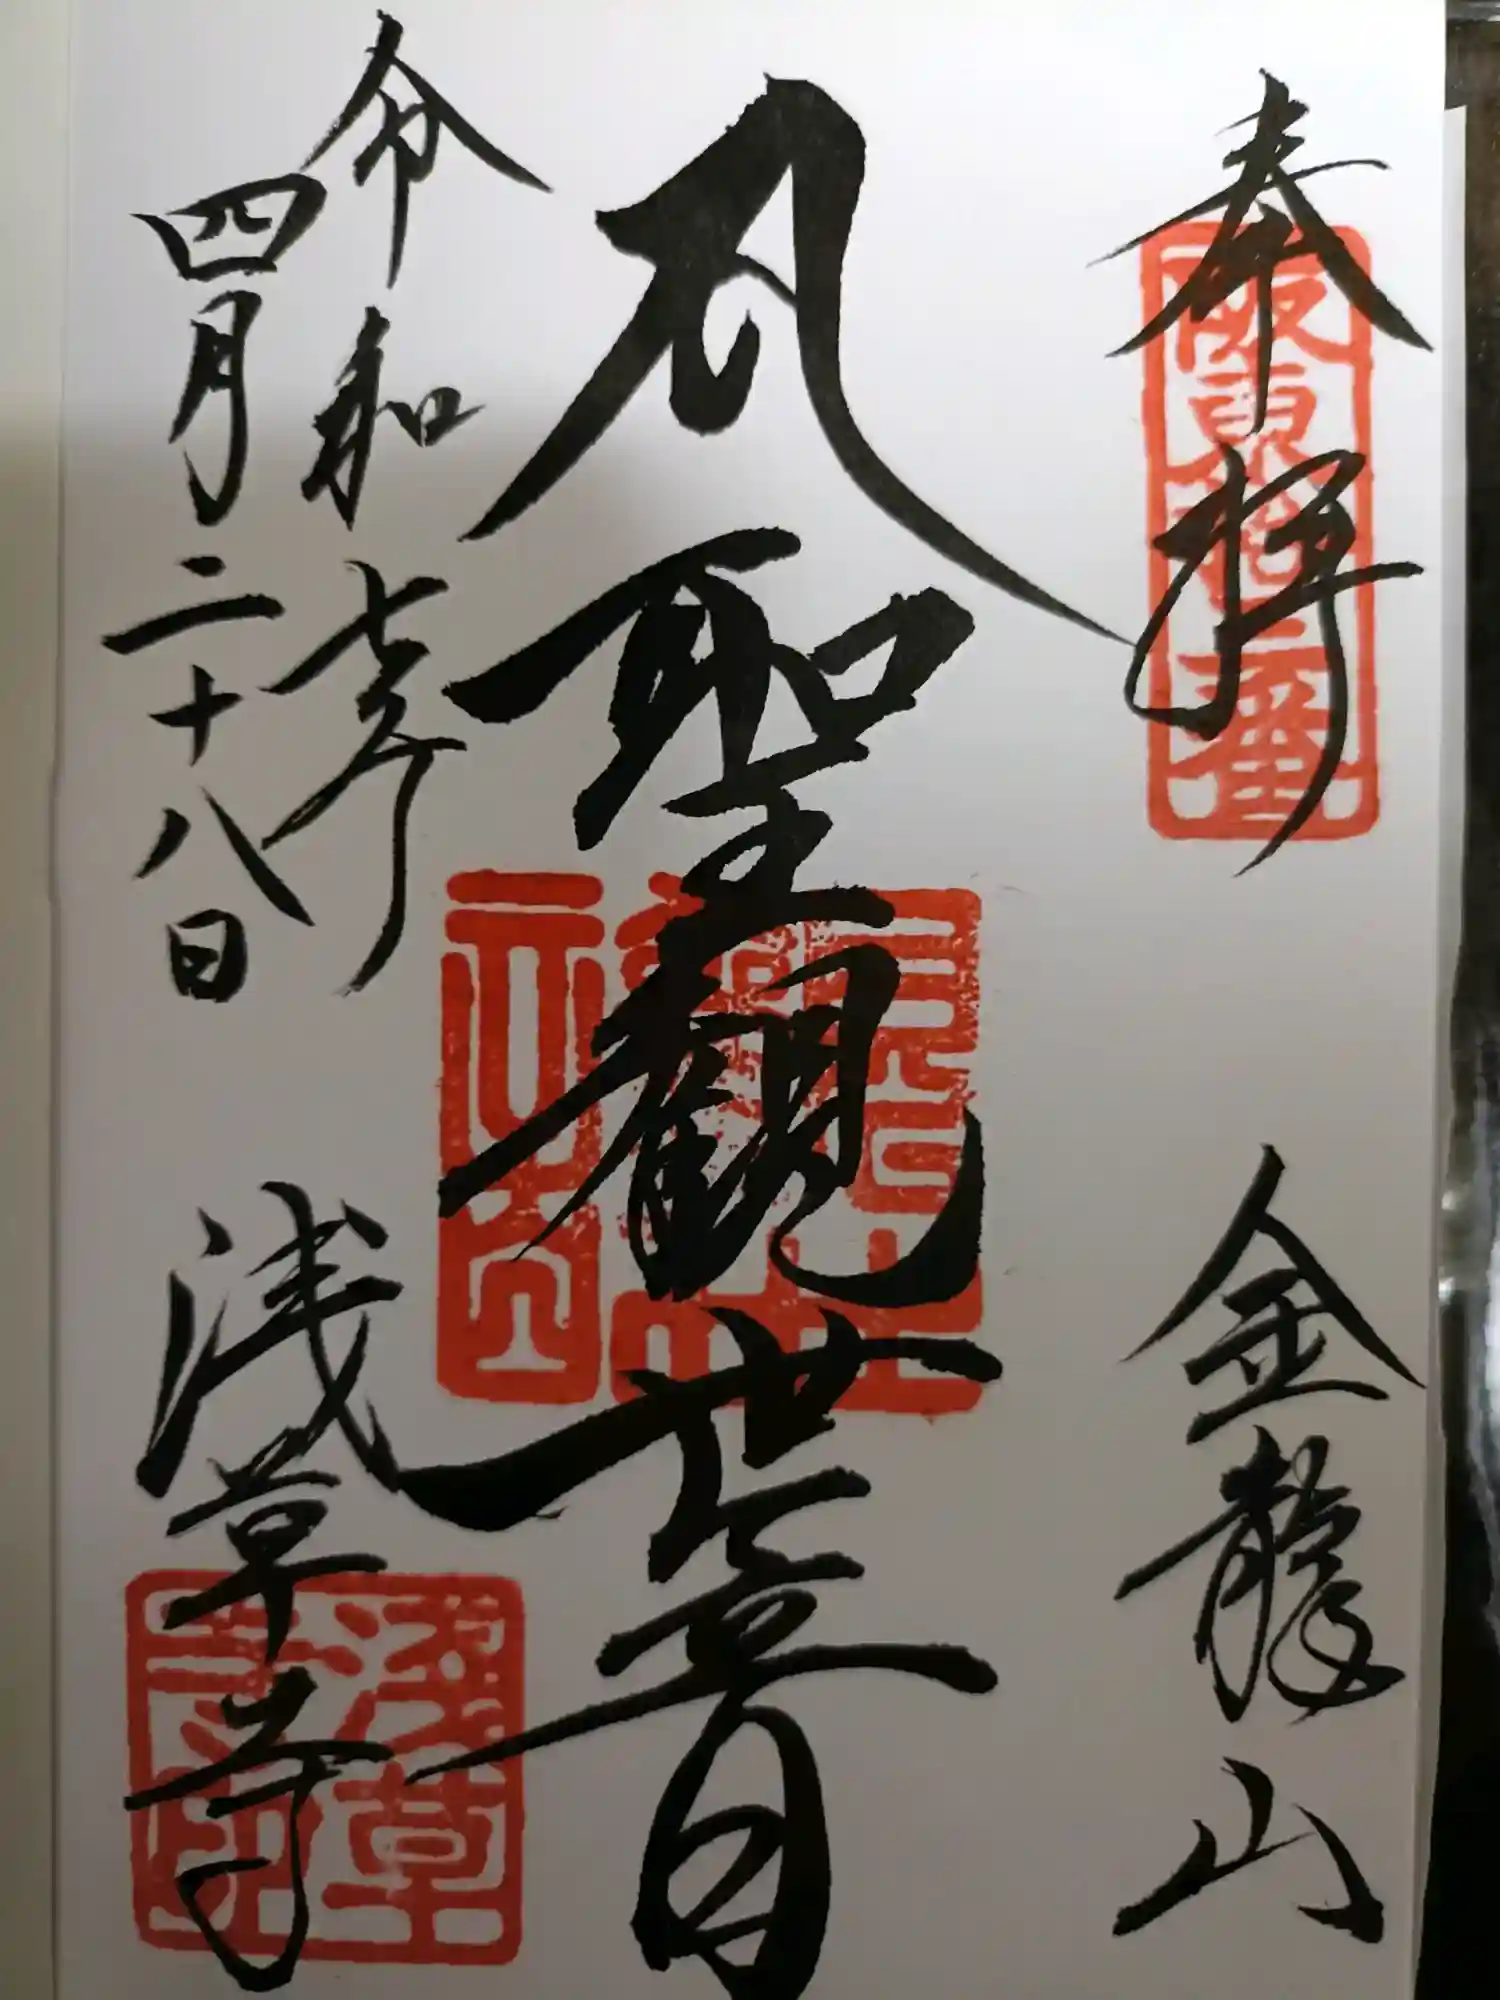 奉拝
阪東拾三番
金龍山
聖観世音
令和七年
四月二十八日
浅草寺
浅草寺印